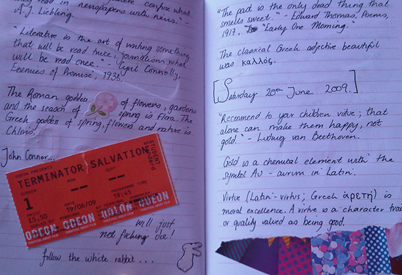 read in newspapers with news." -
A.J. Liebling.
"Literature is the art of writing something
that will be read twice; journalism what
will be read once." - Cyril Connolly,
Enemies of Promise, 1938.
The Roman goddess of flowers, gardens
and the season of spring is Flora. The
Greek goddess of spring, flowers and nature is
Chloris.
John Connor...
TERMINATOR SALVATION
1
ODEON ODEON ODEON ODEON
will just
not fucking die!
follow the white rabbit...
"The past is the only dead thing that
smells sweet." - Edward Thomas, Poems,
1917. "Early One Morning."
The classical Greek adjective beautiful
was καλλός.
[Saturday 20th June 2009.]
"Recommend to your children virtue; that
alone can make them happy, not
gold." - Ludwig van Beethoven.
Gold is a chemical element with the
symbol Au - aurum in Latin.
Virtue (Latin - virtus; Greek ἀρετή) is
moral excellence. A virtue is a character trait
or quality valued as being good.